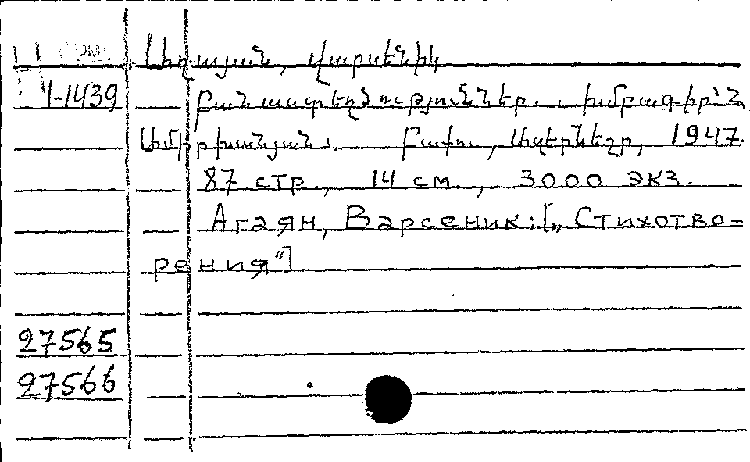 Աղայան, Վարսենիկ
1-1439
Բանաստեղծություններ. խմբագիր՝ Ն.
Ամիրխանյան։ Բաքու, Ազերնեշր, 1947.
87 стр., 14 см., 3000 экз.
Агаян, Варсеник: [„Стихотво-
рения"]
27565
27566